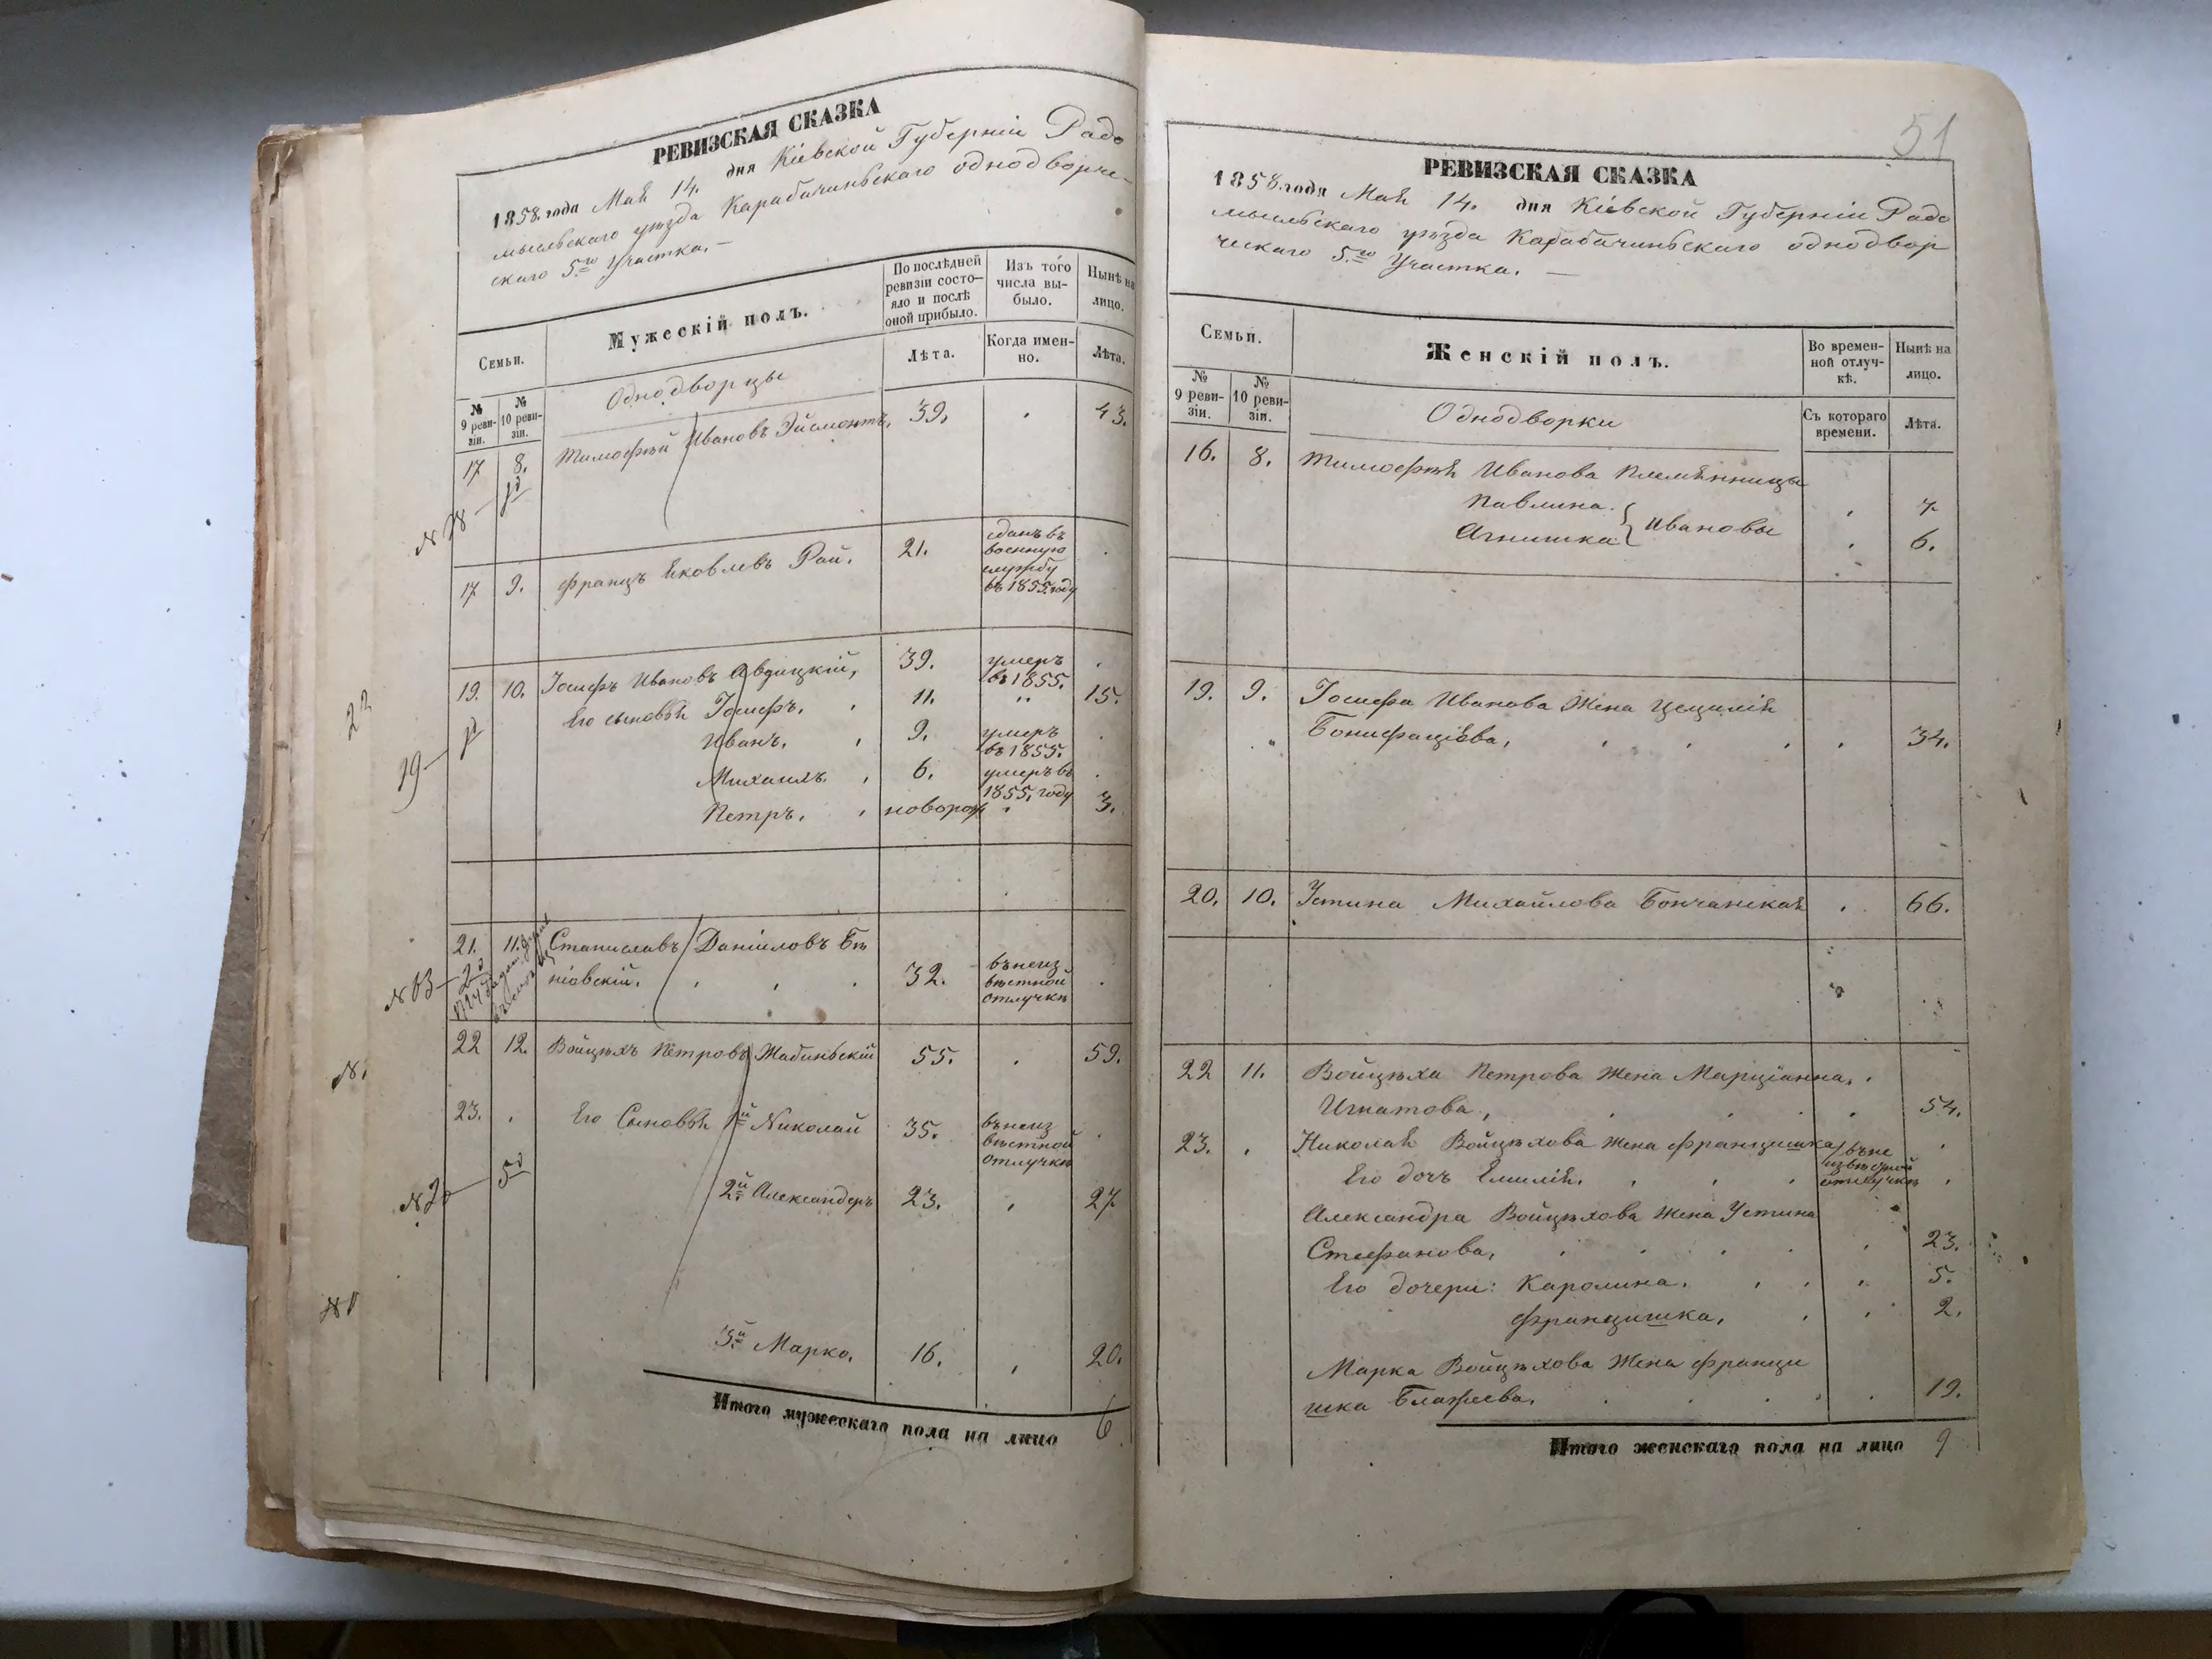 РЕВИЗСКАЯ СКАЗКА
1858 года Мая 14. дня Кіевской Губерніи Радо
мысльскаго уѣзда Карабачиньскаго однодворче-
скаго 5.го Участка. —
Семьи.
Мужескій полъ.
По послѣдней ревизіи состо-
яло и послѣ
оной прибыло.
Изъ того
числа вы-
было.
Нынѣ на
лицо.
Лѣта.
Когда имен-
но.
Лѣта.
№
9 реви-
зіи.
№
10 реви-
зіи.
Однодворцы
17 8. Тимофѣй Ивановъ Эйсмонтъ, 39. 43.
17 9. Францъ Яковлевъ Рай. 21.
сданъ въ
военную
службу
въ 1855 году
22
19. 10. Іосифъ Ивановъ Авдицкій, 39.
умеръ
въ 1855.
Его сыновья Іосифъ. 11. 15.
Иванъ. 9.
умеръ
въ 1855.
Михаилъ. 6.
умеръ въ
1855. году
Петръ. новорож 3.
19
21. 11. Станиславъ Даніиловъ Бѣ
ніовскій. 32.
въ неиз
вѣстной
отлучкѣ
22 12. Войцѣхъ Петровъ Жабиньскій 55. 59.
23. Его Сыновья 1й Николай 35.
въ неиз
вѣстной
отлучкѣ
№ 20
2й Александеръ 23. 27
3й Марко. 16. 20.
Итого мужескаго пола на лицо 6
51
РЕВИЗСКАЯ СКАЗКА
1858 года Мая 14. дня Кіевской Губерніи Радо
мысльскаго уѣзда Карабачиньскаго однодвор
ческаго 5.го Участка. —
Семьи.
Женскій полъ.
Во времен-
ной отлуч-
кѣ.
Нынѣ на
лицо.
№
9 реви-
зіи.
№
10 реви-
зіи.
Съ котораго
времени.
Лѣта.
Однодворки
16. 8. Тимофѣя Иванова племянницы
Павлина. 7
Агнишка } Ивановы 6.
19. 9. Іосифа Иванова Жена Цецилія
Бонифаціева, 34.
20. 10. Устина Михайлова Бончанская 66.
22 11. Войцѣха Петрова Жена Марціанна,
Игнатова, 54.
23. Николая Войцѣхова Жена Францишка
въ не
извѣстной
отлучкѣ
Его дочь Емилія.
Александра Войцѣхова Жена Устина
Стефанова, 23.
Его дочери: Каролина. 5.
Францишка, 2.
Марка Войцѣхова Жена Франци
шка Блажеева. 19.
Итого женскаго пола на лицо 9